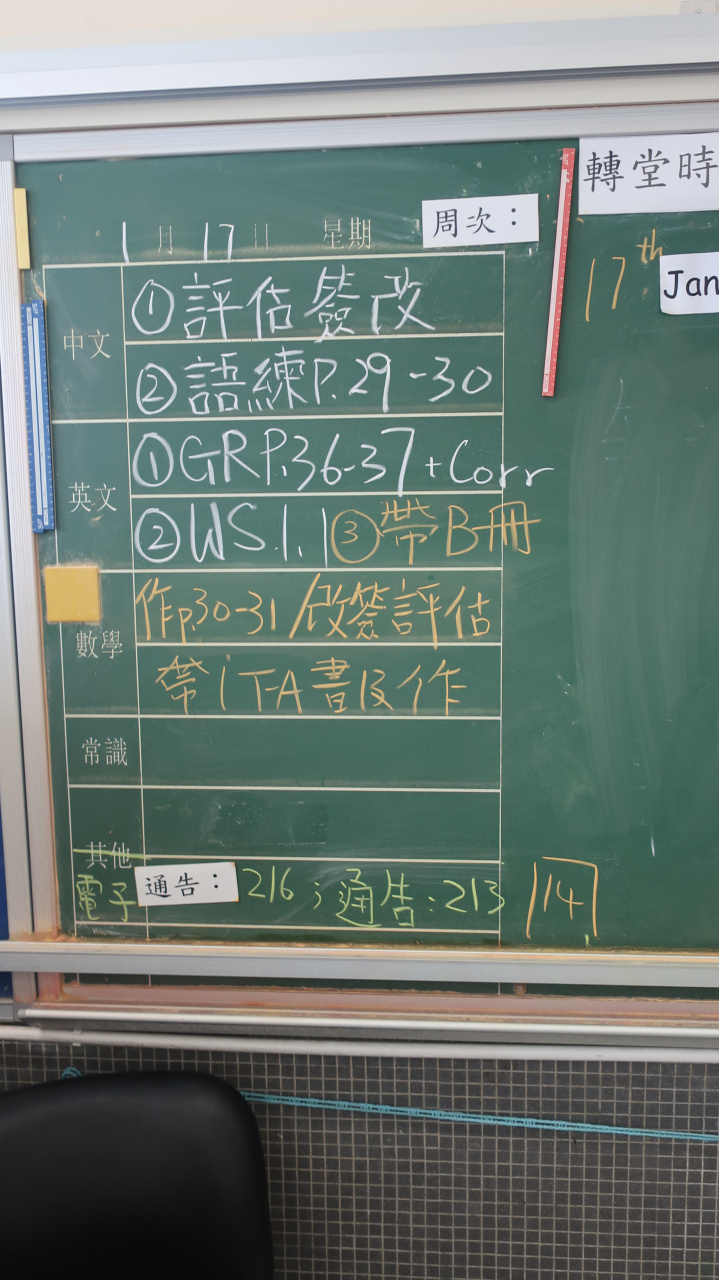 轉堂時
1月17日 星期 周次：
17th Jan
中文
①評估簽改
②語練P.29-30
英文
①GRP.36-37+Corr
②WS.1.1③帶B冊
數學
作p.30-31/改簽評估
帶iT-A書及作
常識
其他
電子通告：216；通告：213
14